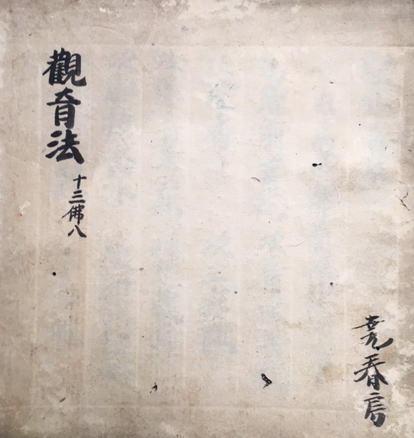 觀音法
十三佛八
尭春房